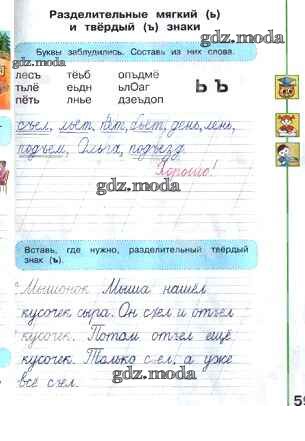 Разделительные мягкий (ь)
и твёрдый (ъ) знаки
gdz.moda
Буквы заблудились. Составь из них слова.
gdz.moda
лесъ тёьб опъдмё
тьлё еьдн ьлОаг Ь Ъ
пёть лнье дзеъдоп
съел, льёт, пёт, бьёт, день, лень,
gdz.moda
подъём, Ольга, подъезд.
Хорошо!
gdz.moda
Вставь, где нужно, разделительный твёрдый
знак (ъ).
gdz.moda
Мышонок Мыша нашёл
кусочек сыра. Он съел и отъел
кусочек. Потом отъел ещё
кусочек. Только с ел, а уже
всё съел.
gdz.moda
59